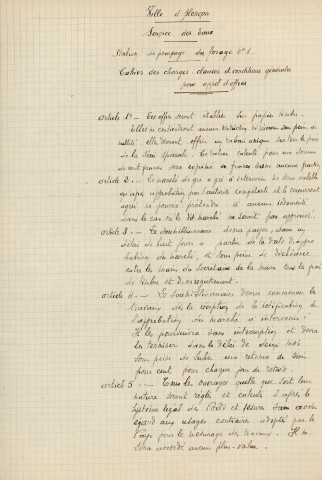 Ville d'Alençon
Service des Eaux
Station de pompage du forage N° 1.
Cahier des charges, clauses et conditions générales
pour appel d'offres
Article 1er - Les offres seront établies sur papier timbré.
Elles ne contiendront aucune restriction ni réserve sous peine de
nullité. Elles devront offrir un rabais unique sur tous les prix
de la série spéciale. Ce rabais calculé pour une somme
de cent francs sera exprimé en francs sans aucune fraction
Article 2. - Le marché de gré à gré à intervenir ne sera valable
qu'après approbation par l'autorité compétente et le concurrent
agréé ne pourra prétendre à aucune indemnité
dans le cas où le dit marché ne serait pas approuvé.
Article 3. - Le soumissionnaire devra payer, dans un
délai de huit jours à partir de la date d'appro-
bation du marché, et sous peine de déchéance,
entre les mains du Secrétaire de la mairie tous les frais
de timbre et d'enregistrement.
Article 4. - Le soumissionnaire devra commencer les
travaux dès la réception de la notification de
l'approbation du marché à intervenir.
Il les poursuivra sans interruption et devra
les terminer dans le délai de deux mois
sous peine de subir une retenue de
pour cent pour chaque jour de retard.
Article 5. - Tous les ouvrages quelle que soit leur
nature seront réglés et calculés d'après le
système légal des Poids et mesures sans avoir
égard aux usages contraires adoptés par le
Pays pour le mesurage des travaux. Il ne
sera accordé aucune plus-value.